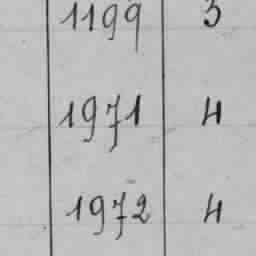 1199 3
1971 4
1972 4